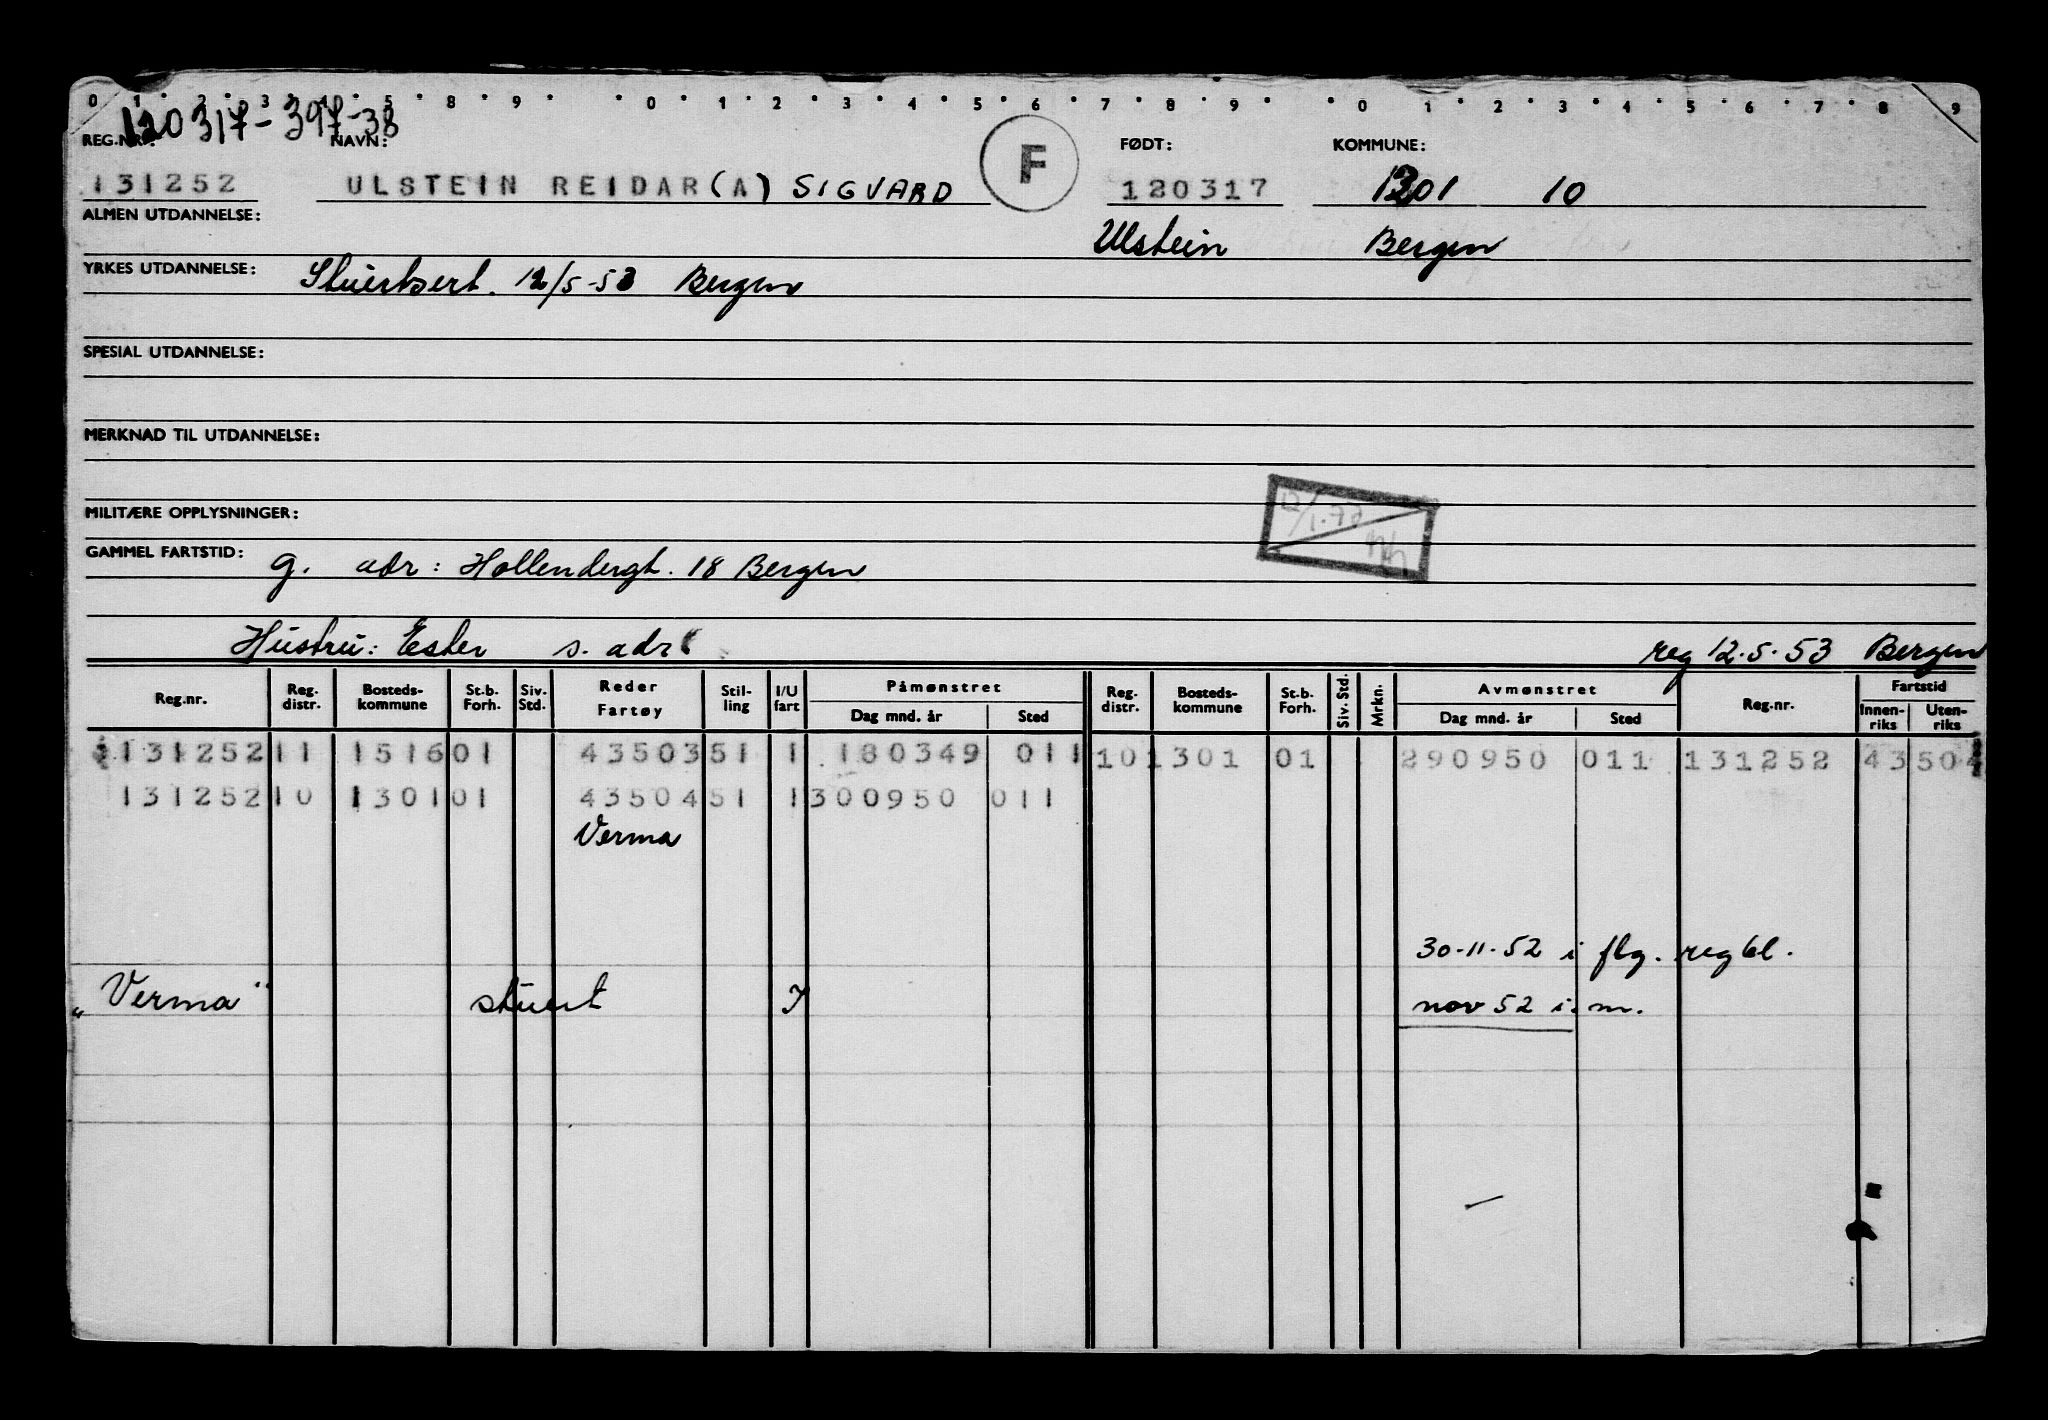 0 1 2 3 4 5 8 9 0 1 2 3 4 5 6 7 8 9 0 1 2 3 4 5 6 7 8 9
120317-397-38
REG.NR.: NAVN: F FØDT: KOMMUNE:
131252 ULSTEIN REIDAR(A) SIGVARD 120317 1301 10
ALMEN UTDANNELSE: Ulstein Bergen
YRKES UTDANNELSE: Stuertsert. 12/5-53 Bergen
SPESIAL UTDANNELSE:
MERKNAD TIL UTDANNELSE:
MILITÆRE OPPLYSNINGER:
12/1.78
GAMMEL FARTSTID: g. adr: Hollendergt. 18 Bergen
Hustru: Ester s. adr reg 12.5.53 Bergen
Reg.nr. Reg. distr. Bosteds-kommune St.b. Forh. Siv. Std. Reder Fartøy Stil-ling I/U fart Påmønstret Dag mnd. år Sted Reg. distr. Bosteds-kommune St.b. Forh. Siv. Std. Mrkn. Avmønstret Dag mnd. år Sted Reg.nr. Fartstid Innen-riks Uten-riks
131252 11 1516 01 43503 51 1 180349 011 10 1301 01 290950 011 131252 43 504
131252 10 1301 01 43504 51 1 300950 011
Verma
30-11-52 i flg. regbl.
"Verma" stuert I nov 52 i. m.